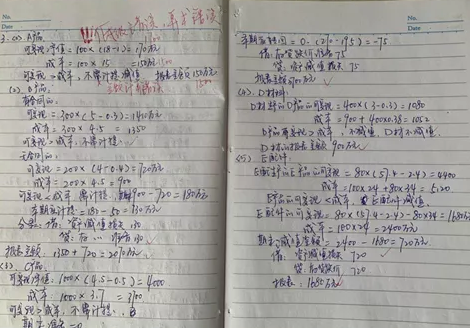 No.
Date
3. (1). A产品
可变现净值=100×(18-1)=1700万元
成本=100×15=1500万元
可变现>成本, 不需计提减值 报表金额150万元
(2). B产品
有合同的:
可变现=300×(5-0.3)=1410万元
成本=300×4.5=1350
可变现>成本, 不需计提.
无合同的:
可变现=200×(4-0.4)=720万元
成本=200×4.5=900
可变现<成本 需计提. 900-720=180万元
本期应计提=180-50=130万元
分录: 借: 资产减值损失 130
贷: 存 130
报表金额 1350+720=2070万元
(3). C产品
可变现净值: 1000×(4.5-0.5)=4000
成本 1000×3.7=3700
可变现>成本, 不需计提.
No.
Date
本期应转回=0-(270-195)=-75
借: 存货跌价准备 75
贷: 资产减值损失 75
报表金额3700万元
(4). D材料
D材料的D产品的可变现=400×(3-0.3)=1080
成本=900+400×0.38=1052
D产品可变现>成本, 不减值, D材不减值.
D材的报表金额 900万元
(5). E配件
E配件的E产品的可变现=80×(57.4-2.4)=4400
成本=100×24+80×34=5120
E产品的可变现<成本 E配件减值
E配件的可变现=80×(57.4-2.4)-80×34=1680万元
成本=100×24=2400万元
期末减值金额=2400-1680=720万元
借: 资产减值损失 720
贷: 存货跌价 720
报表: 1680万元